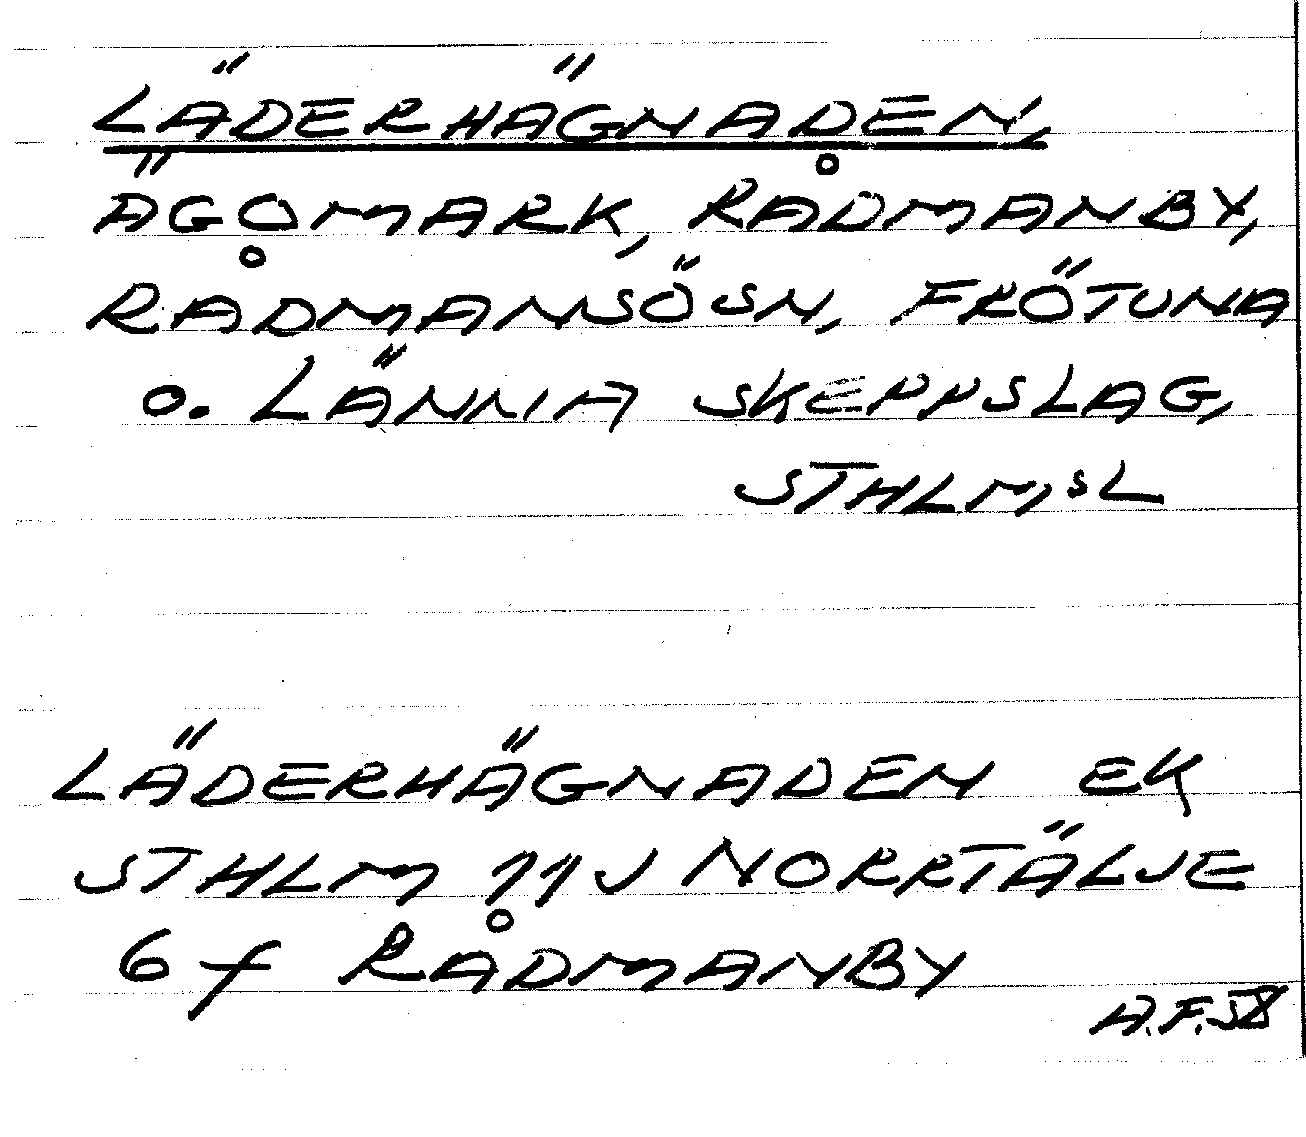 LÄDERHÄGNADEN,
ÄGOMARK, RÅDMANBY,
RÅDMANSÖSN, FRÖTUNA
O. LÄNNA SKEPPSLAG,
STHLMSL
LÄDERHÄGNADEN EK
STHLM 11J NORRTÄLJE
6f RÅDMANBY